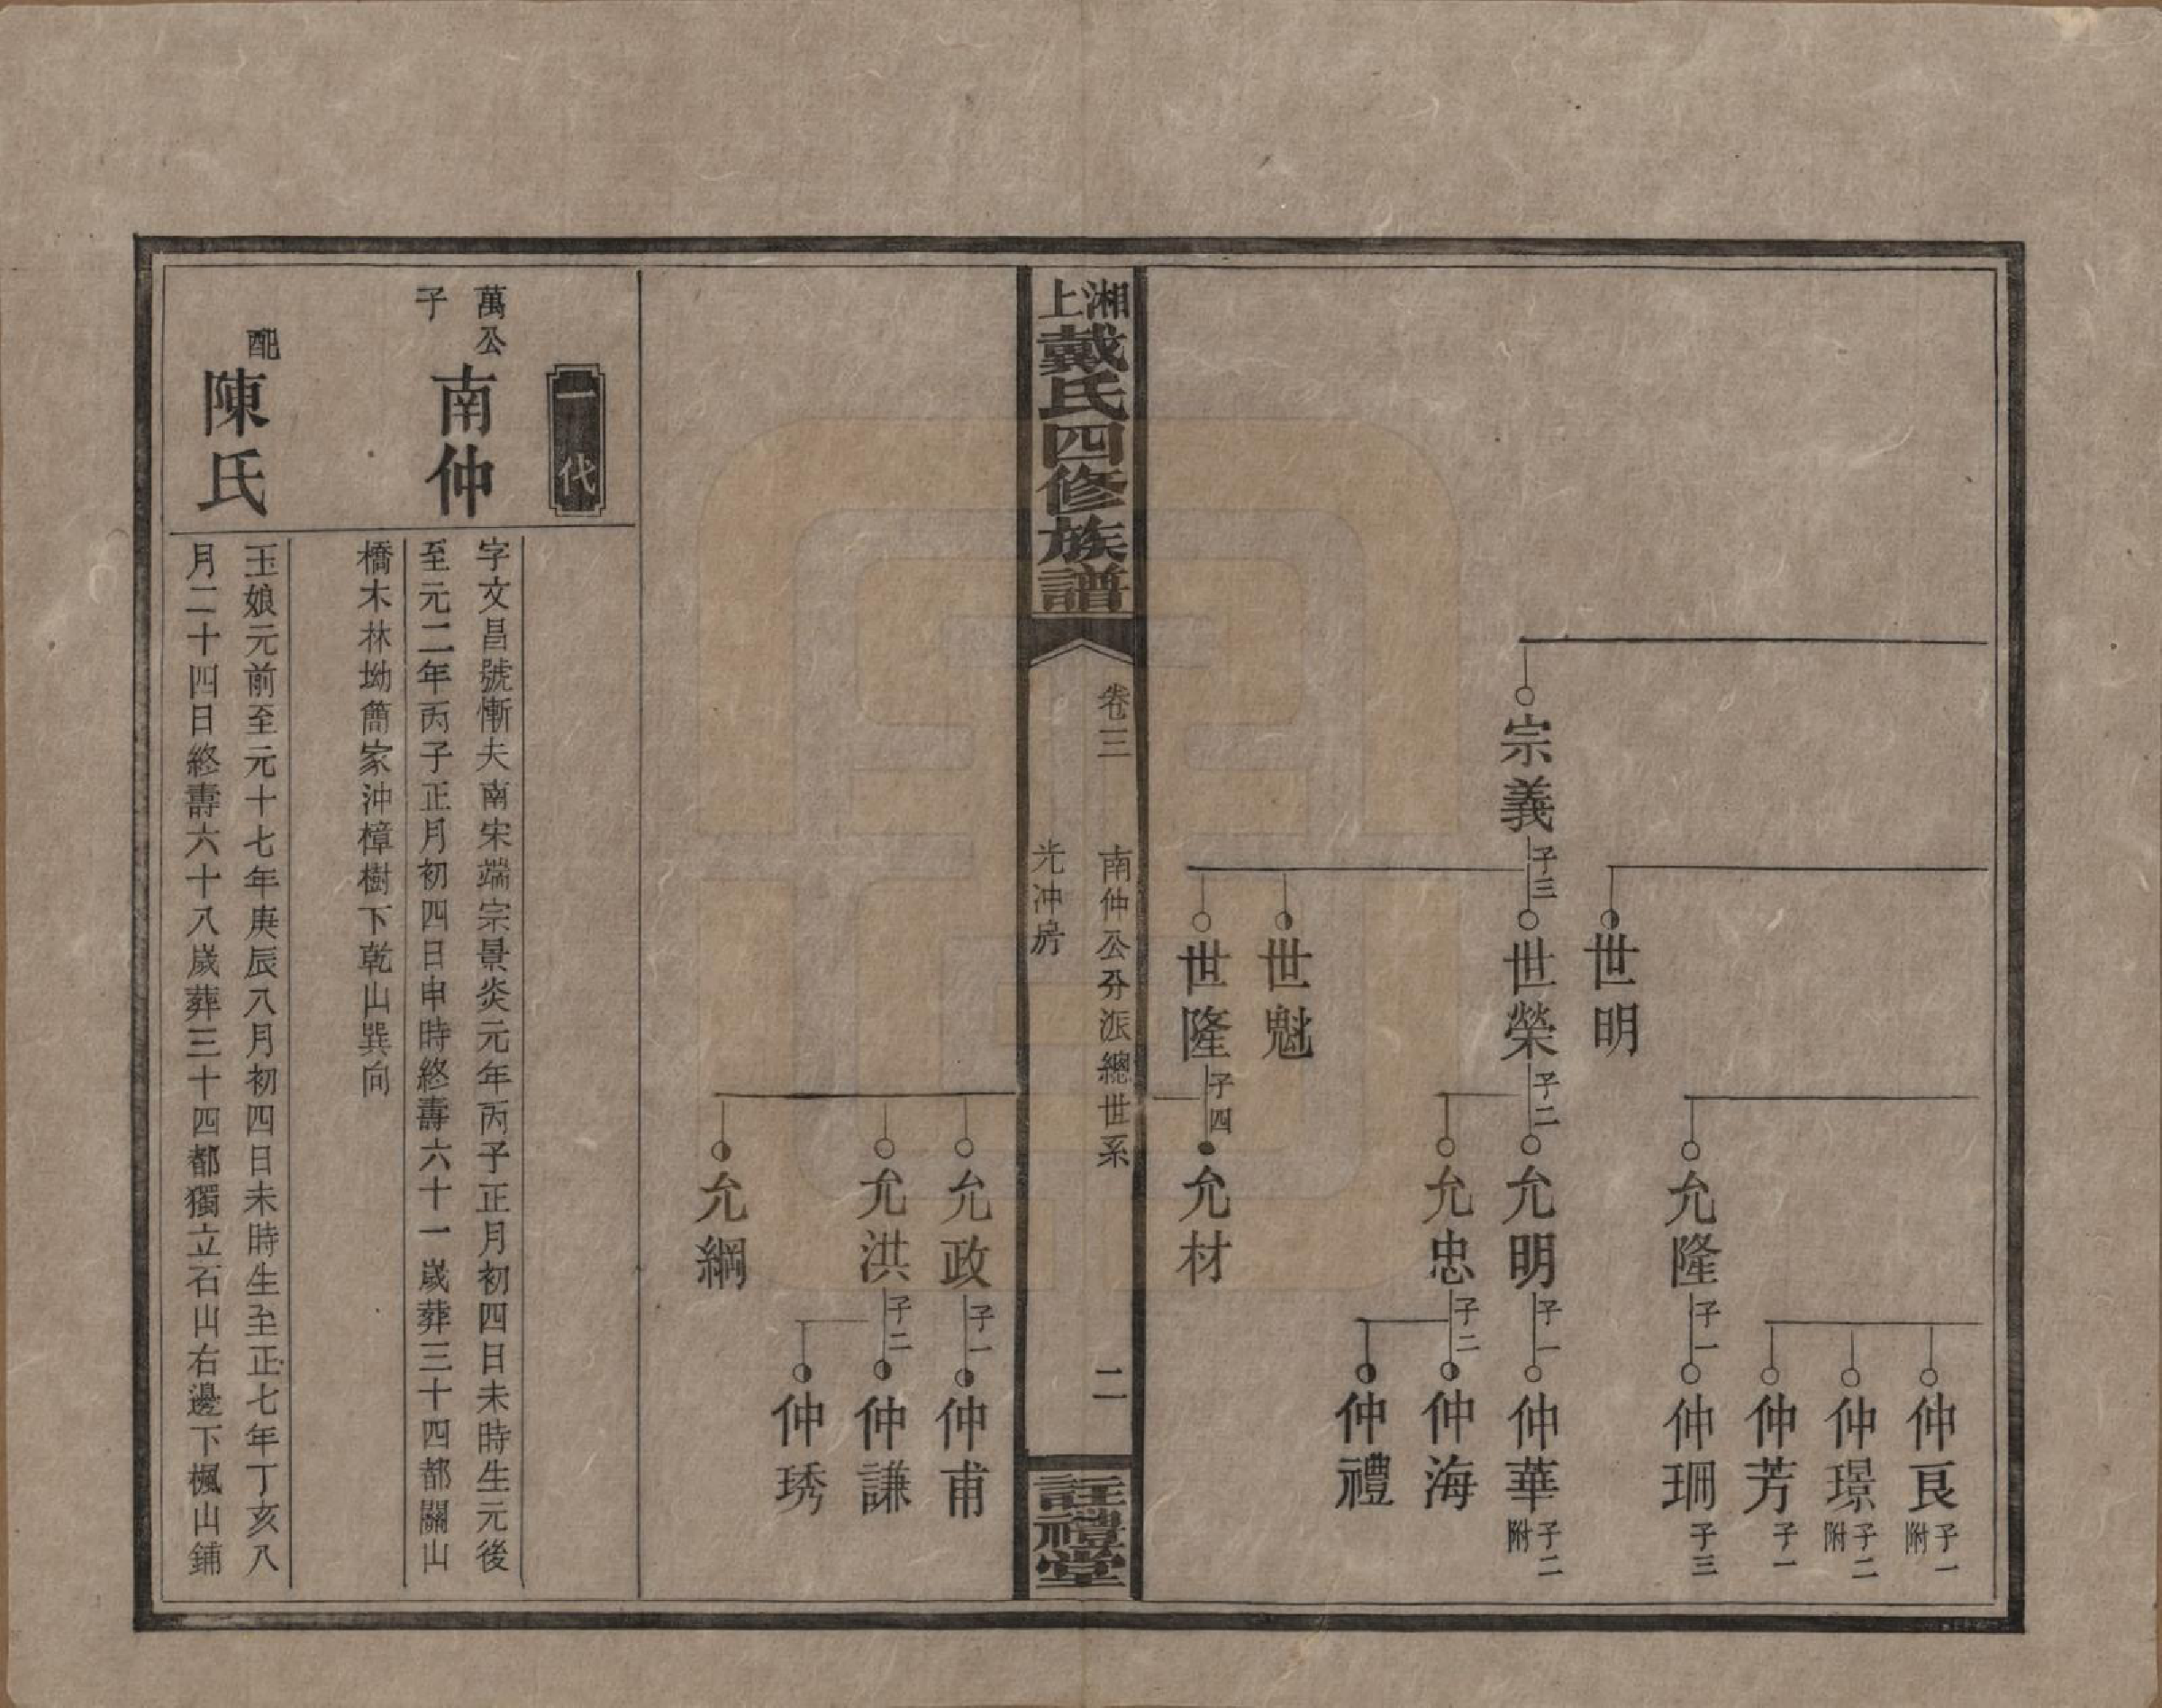 宗義 子三
世明
世榮 子二
世魁
世隆 子四
允隆 子一
允明 子一
允忠 子二
允材
仲良 子一 附
仲璟 子二 附
仲芳 子一
仲珊 子三
仲華 子二 附
仲海
仲禮
湘上戴氏四修族譜
卷三 南仲公分派總世系
光冲房
二
註禮堂
允政 子一
允洪 子二
允綱
仲甫
仲謙
仲琇
一代
萬公子 南仲
字文昌號慚夫南宋端宗景炎元年丙子正月初四日未時生元後
至元二年丙子正月初四日申時終壽六十一歲葬三十四都關山
橋木林坳簡家沖樟樹下乾山巽向
配 陳氏
玉娘元前至元十七年庚辰八月初四日未時生至正七年丁亥八
月二十四日終壽六十八歲葬三十四都獨立石山右邊下楓山鋪